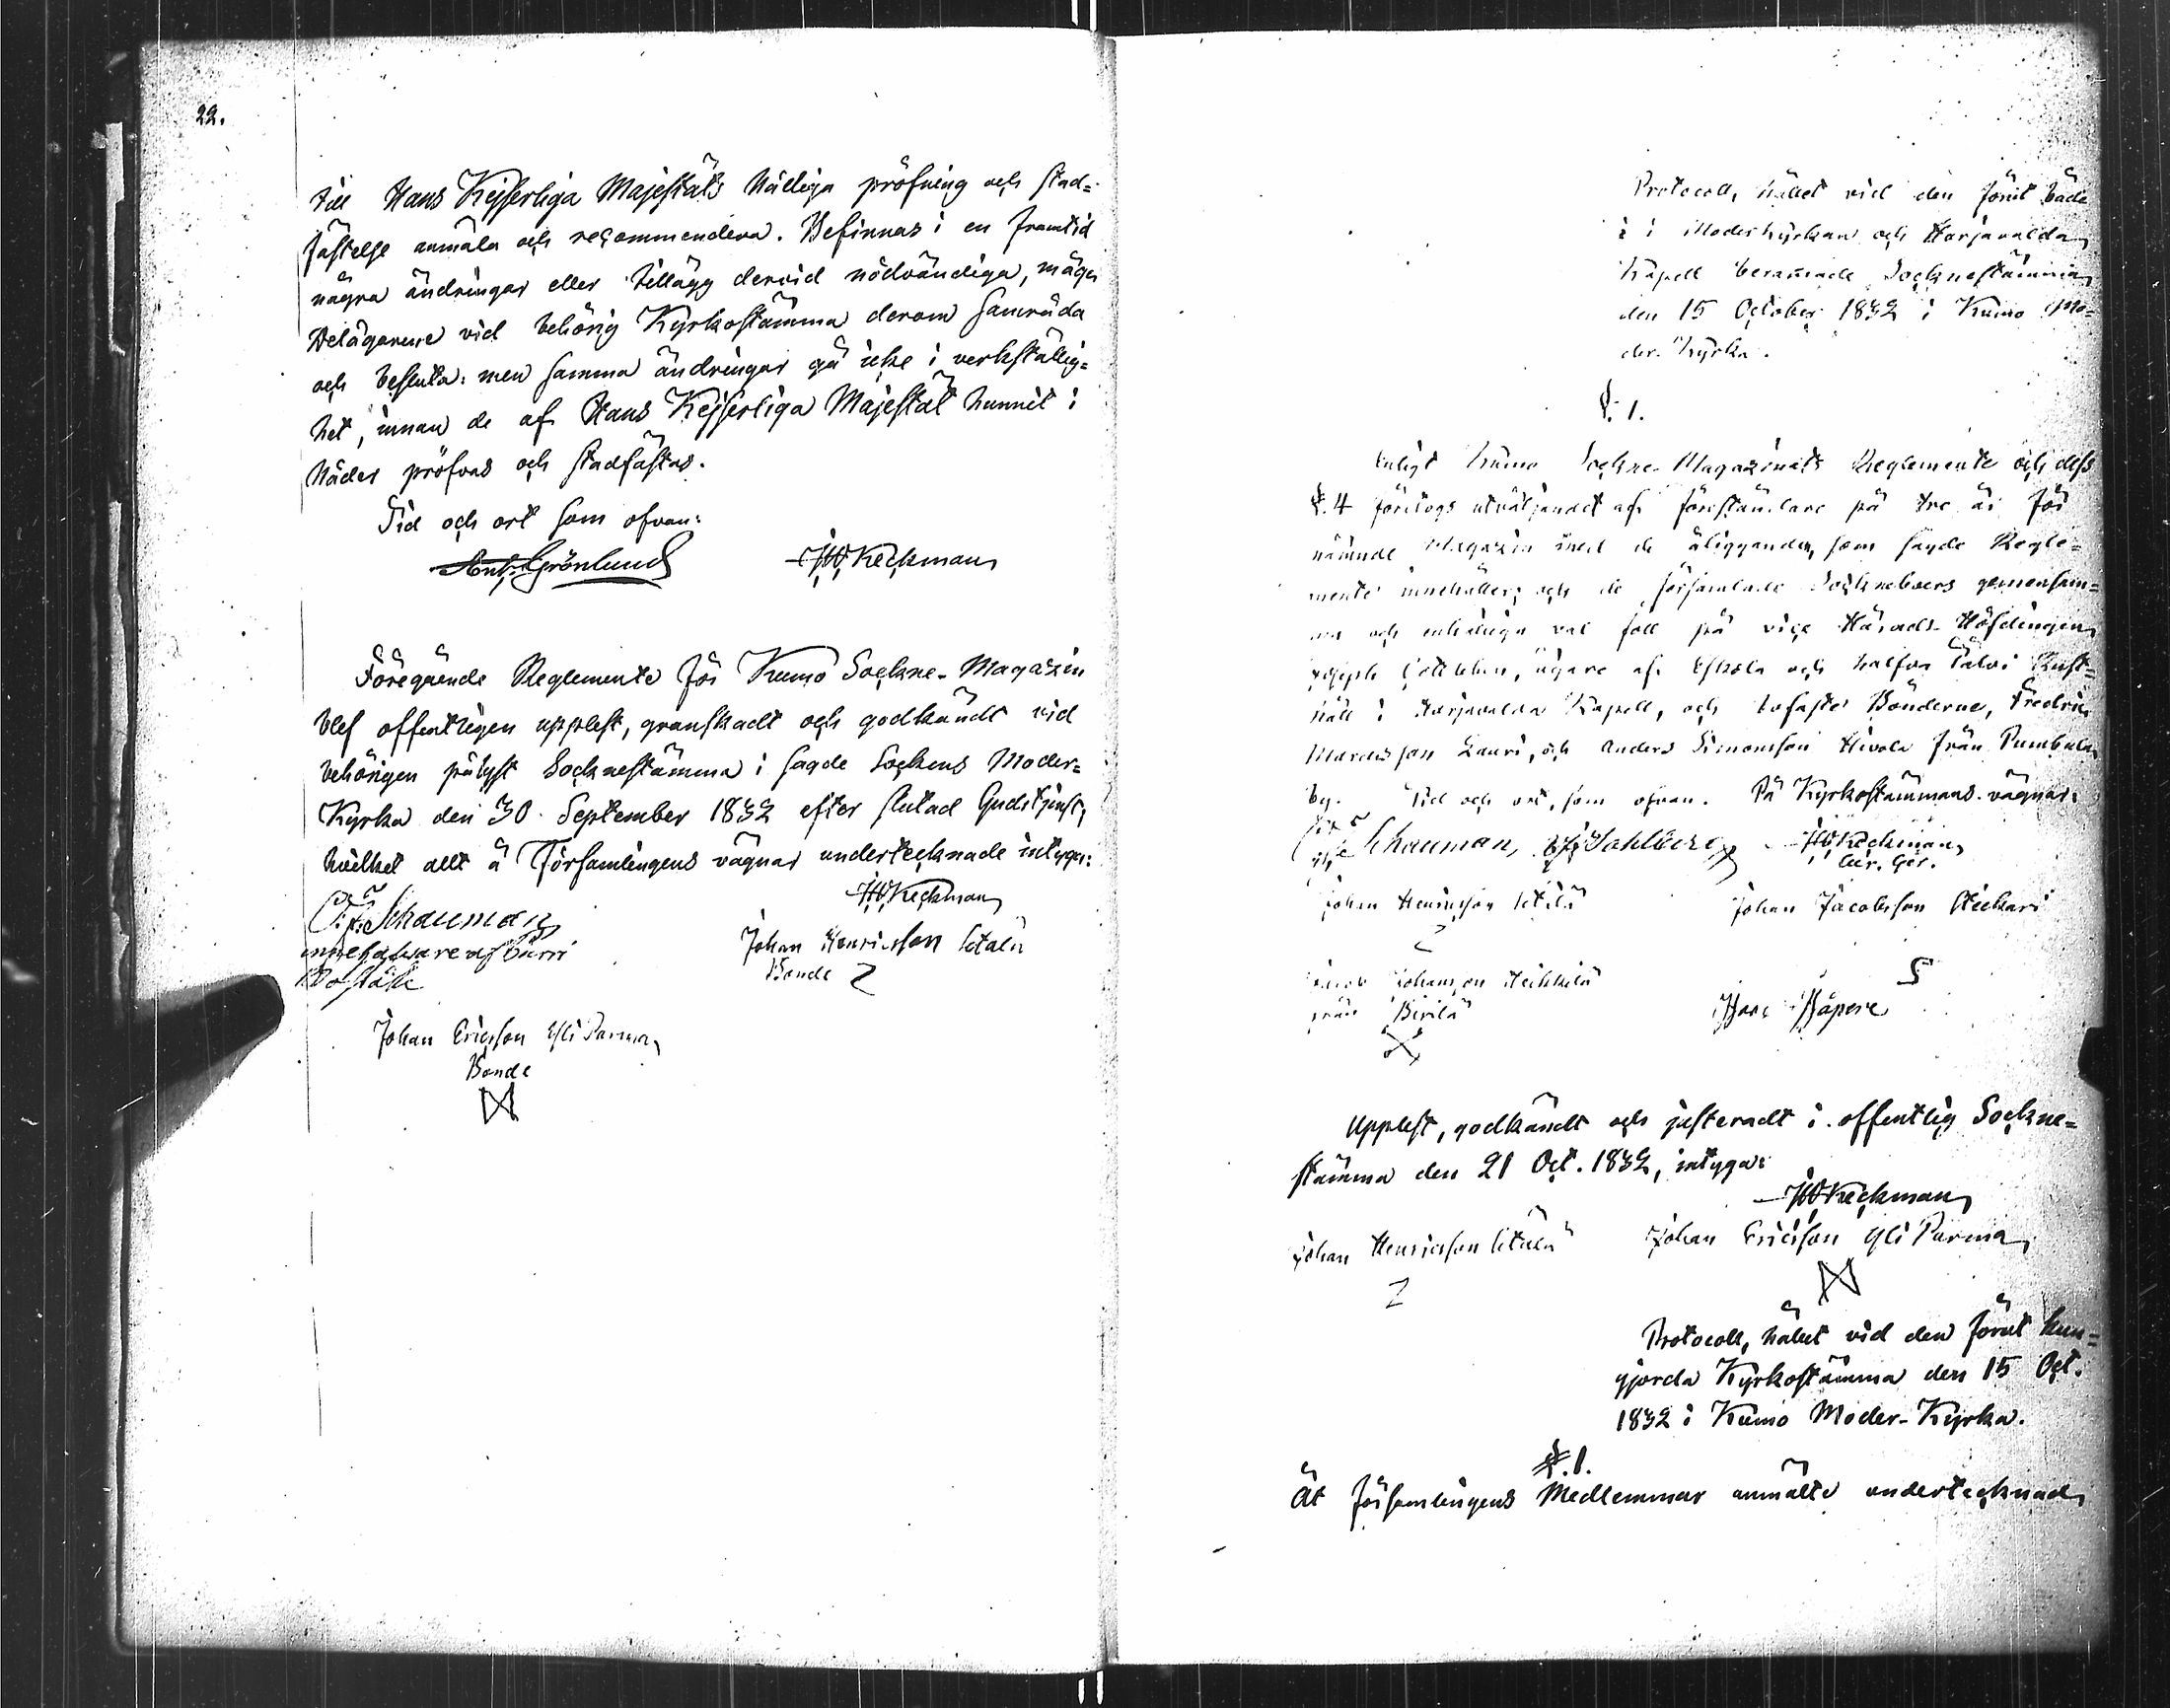 22.
till Hans Kejserliga Majestäts Nådiga pröfning och stad-
fästelse anmäla och recommendera. Befinnas i en framtid
några ändringar eller tillägg dervid nödvändiga, måga
Delägarene vid behörig Kyrkostämma derom samråda
och besluta: men samma ändringar gå icke i verkställig-
het, innan de af Hans Kejserliga Majestät hunnit i
Nåder pröfvas och stadfästas.
Tid och ort som ofvan:
Ant. Grönlund
Keckman
Föregående Reglemente för Kumo Sockne-Magazin
blef offentligen upplest, granskadt och godkändt vid
behörigen pålyst Socknestämma i sagde Sockens Moder-
Kyrka den 30 September 1832 efter slutad Gudstjenst,
hvilket allt å Församlingens vägnar undertecknade intyga:
Keckman
Schauman
innehafware af
Boställe
Johan Henricsson Setälä
Bonde
Johan Ericsson Yli Parma
Bonde
Protocoll, hållet vid den förut både
i Moderkyrkan och Harjavalda
Kapell beramade Socknestämma
den 15 October 1832 i Kumo Mo-
der-Kyrka.
§. 1.
Enligt Kumo Sockne-Magazinets Reglemente och dess
§. 4 företogs utväljandet af föreståndare på tre år för
nämnde Magazin med de åligganden, som sagde Regle-
mente innehåller; och de församlade Socknebоers gemensam-
ma och enhälliga val föll på vice Härads-Höfdingen
ägare af och halfva Talvi Rust-
håll i Harjavalda Kapell, och bofaste Bönderne, Fredric
Mardesson Lauri, och Anders Simonsson Hivola från Pumbula
by. Tid och ort, som ofvan. På Kyrkostämmans vägnar:
Schauman, Sahlberg Keckman
Johan Henricsson Setälä
Johan Jacobsson
Johansson Heikkilä
från Pirilä
Upplest, godkändt och justeradt i offentlig Sockne-
stämma den 21 Oct. 1832, intyga:
Keckman
Johan Henricsson Setälä Johan Ericsson Yli Parma
Protocoll, hållet vid den förut kun-
gjorda Kyrkostämma den 15 Oct.
1832 i Kumo Moder-Kyrka.
§. 1.
Åt Församlingens Medlemmar anmälte undertecknad